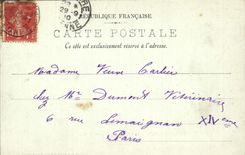 RÉPUBLIQUE FRANÇAISE
CARTE POSTALE
Ce côté est exclusivement réservé à l'adresse.
Madame Veuve Cartier
chez Mr Dumont Vétérinaire
6 rue Lemaignan XIVeme
Paris